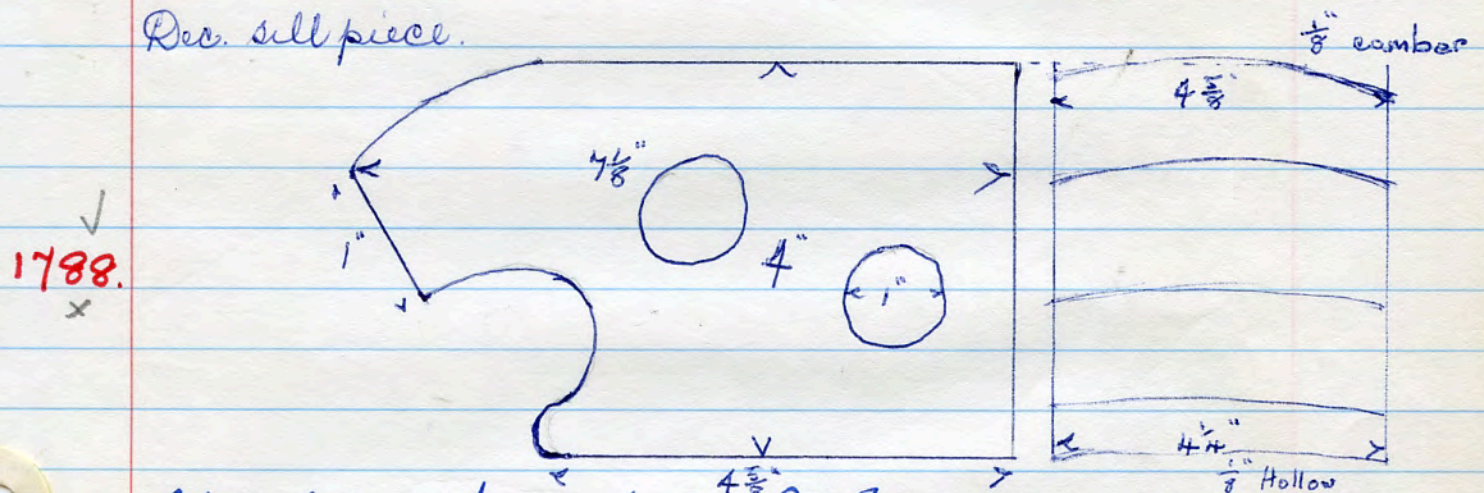 Dec. sill piece.
1/8" camber
4 5/8"
7 1/8"
1"
4"
1788.
1"
4 1/4"
4 5/8"
1/8" Hollow